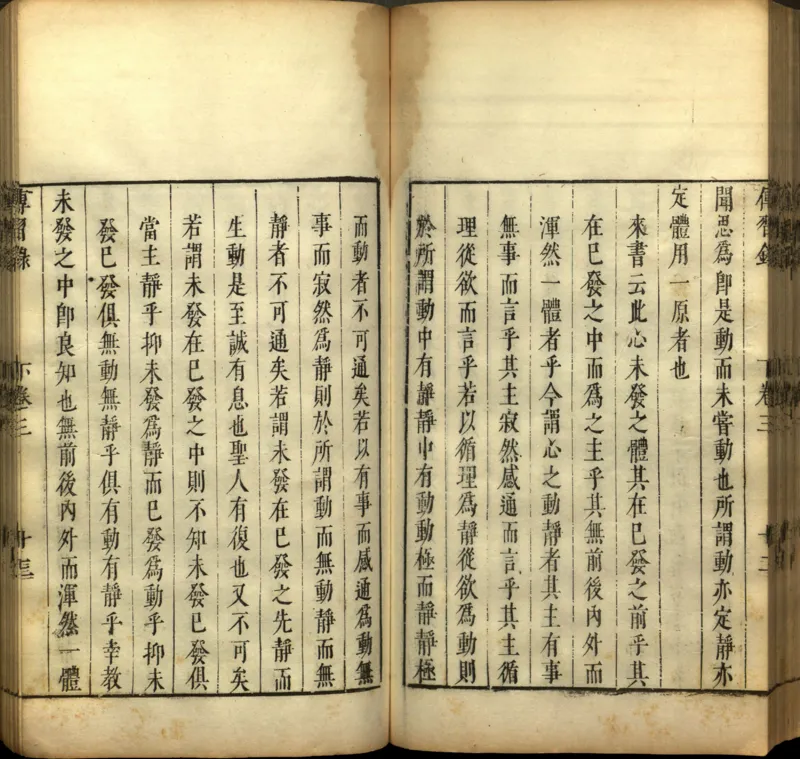 傳習錄
下卷三
聞思爲卽是動而未嘗動也所謂動亦定靜亦
定體用一原者也
來書云此心未發之體其在已發之前乎其
在已發之中而爲之主乎其無前後內外而
渾然一體者乎今謂心之動靜者其主有事
無事而言乎其主寂然感通而言乎其主循
理從欲而言乎若以循理爲靜從欲爲動則
於所謂動中有靜靜中有動動極而靜靜極
而動者不可通矣若以有事而感通爲動無
事而寂然爲靜則於所謂動而無動靜而無
靜者不可通矣若謂未發在已發之先靜而
生動是至誠有息也聖人有復也又不可矣
若謂未發在已發之中則不知未發已發俱
當主靜乎抑未發爲靜而已發爲動乎抑未
發已發俱無動無靜乎俱有動有靜乎幸教
未發之中卽良知也無前後內外而渾然一體
傳習錄
下卷三
十三